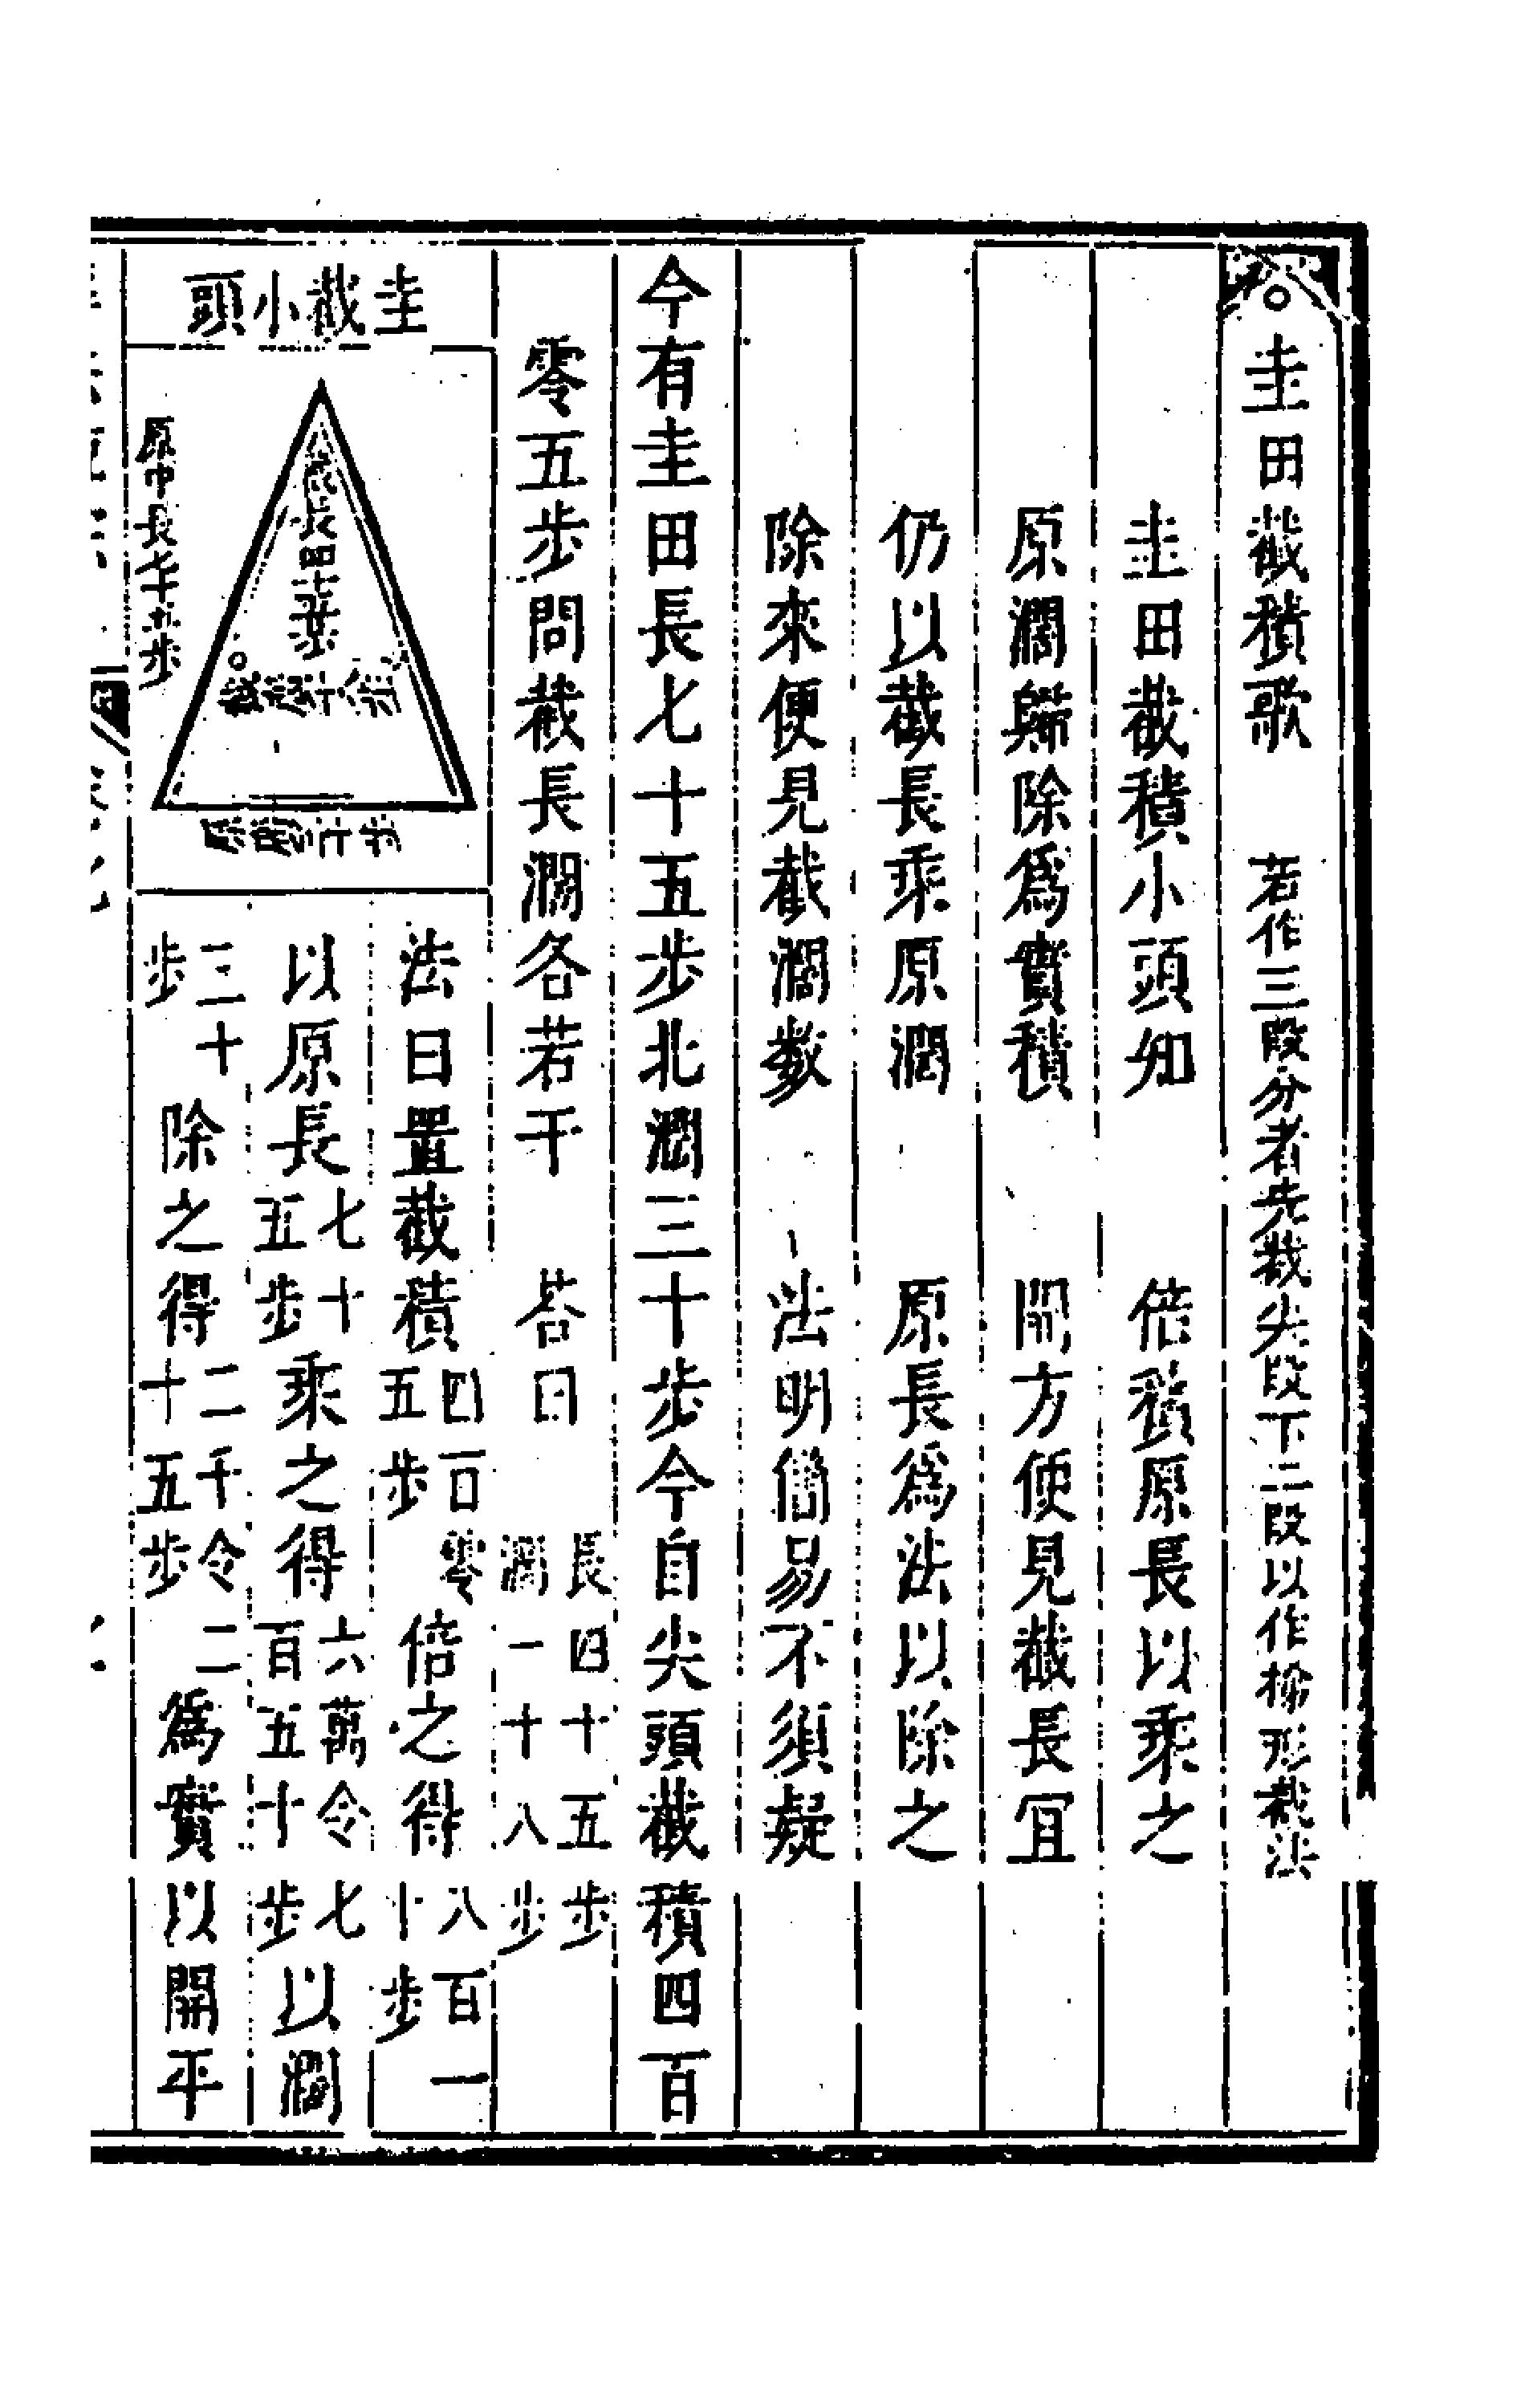 圭田截積歌 若作三段分者先截尖段下二段以作梯形截法
圭田截積小頭知 倍積原長以乘之
原濶歸除爲實積 開方便見截長宜
仍以截長乘原濶 原長爲法以除之
除來便見截濶數 法明簡易不須疑
今有圭田長七十五步北濶三十步今自尖頭截積四百
零五步問截長濶各若干 荅曰 長四十五步 濶一十八步
圭截小頭
原中長七十五步
法曰置截積四百零五步倍之得八百一十步
以原長七十五步乘之得六萬令七百五十步以濶
三十步除之得二千令二十五步爲實以開平